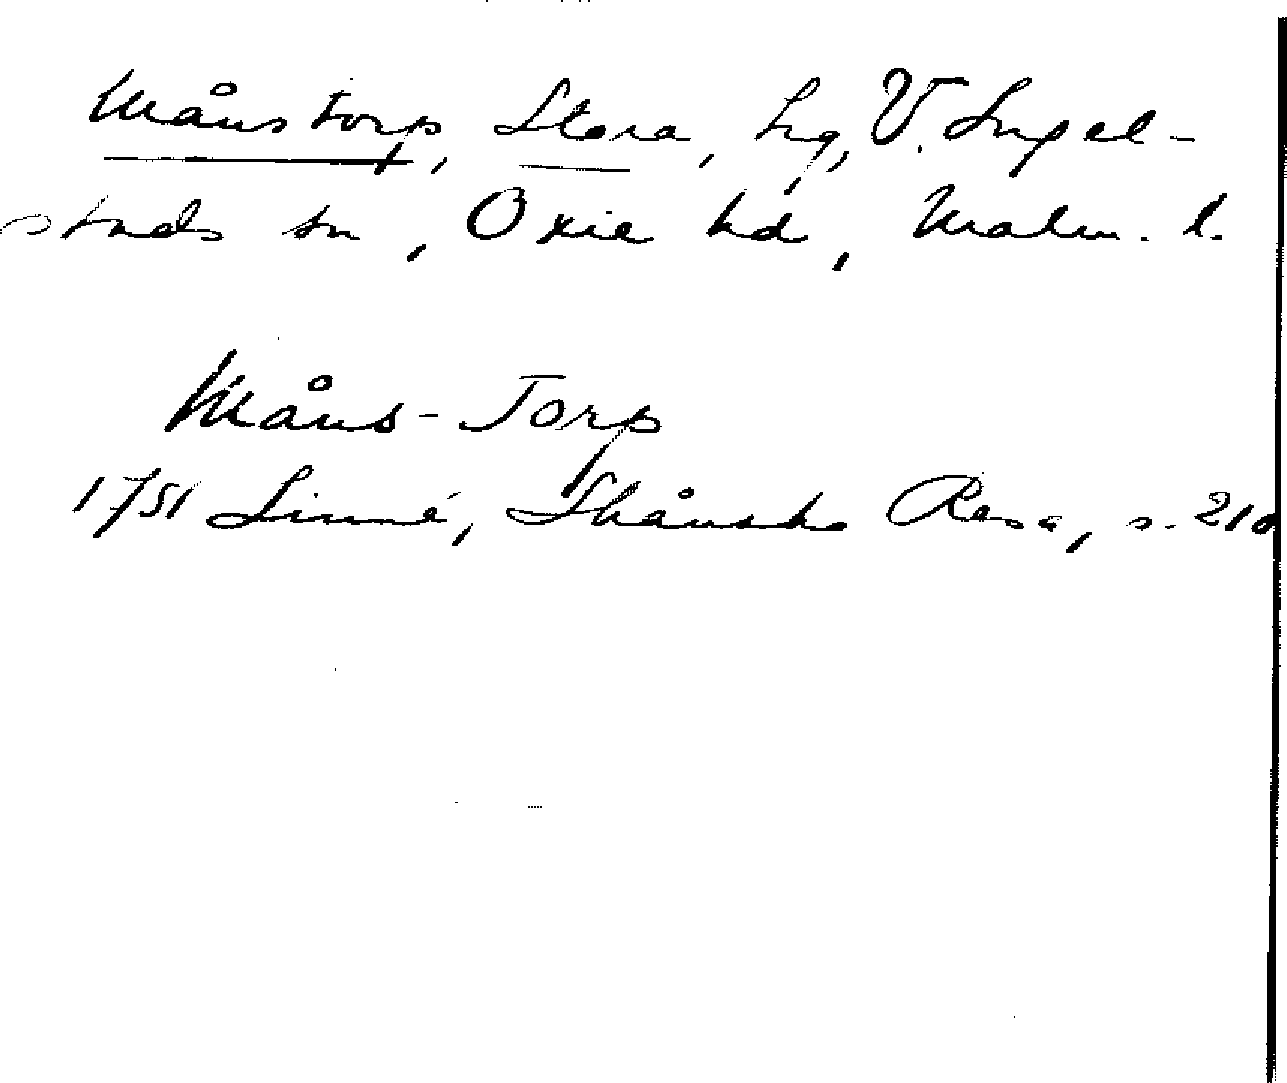 Månstorp, Stora, hg, V. Ingel-
stads sn, Oxie hd, Malm. l.
Måns-Torp
1751 Linné, Skånska Resa, s. 210